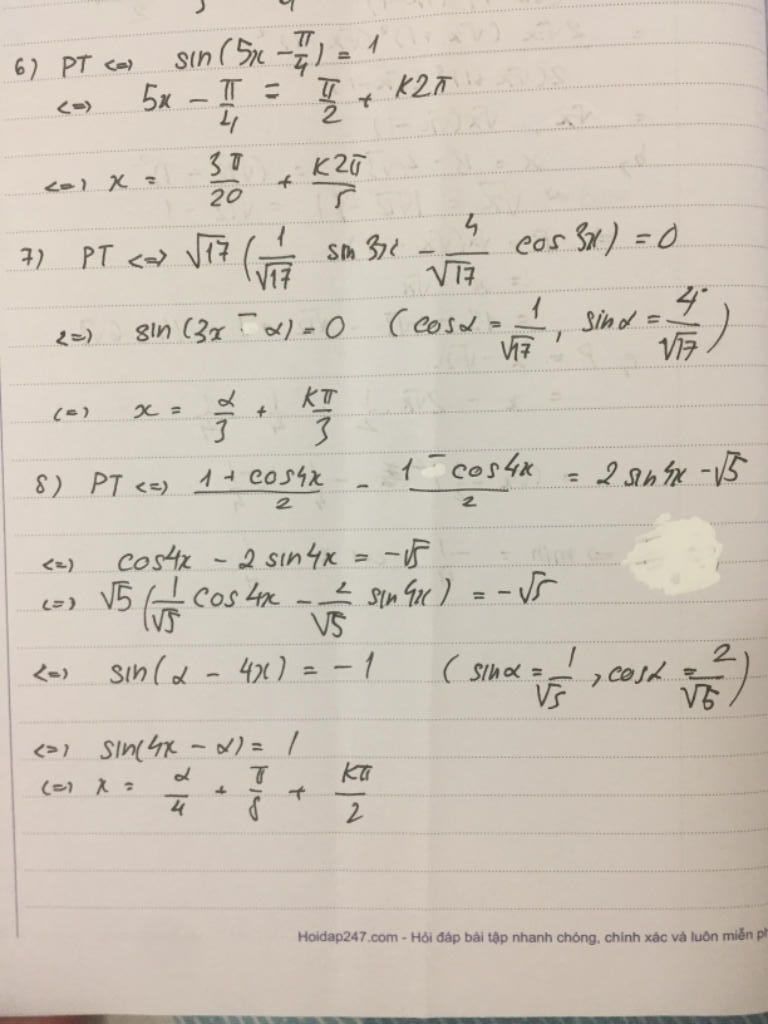 6) PT <=> sin(5x - π/4) = 1
<=> 5x - π/4 = π/2 + K2π
<=> x = 3π/20 + K2π/5
7) PT <=> √17 (1/√17 sin 3x - 4/√17 cos 3x) = 0
<=> sin(3x - α) = 0 (cosα = 1/√17, sinα = 4/√17)
<=> x = α/3 + Kπ/3
8) PT <=> (1 + cos4x)/2 - (1 - cos4x)/2 = 2 sin4x - √5
<=> cos4x - 2 sin4x = -√5
<=> √5 (1/√5 cos4x - 2/√5 sin4x) = -√5
<=> sin(α - 4x) = -1 (sinα = 1/√5, cosα = 2/√5)
<=> sin(4x - α) = 1
<=> x = α/4 + π/8 + Kπ/2
Hoidap247.com - Hỏi đáp bài tập nhanh chóng, chính xác và luôn miễn